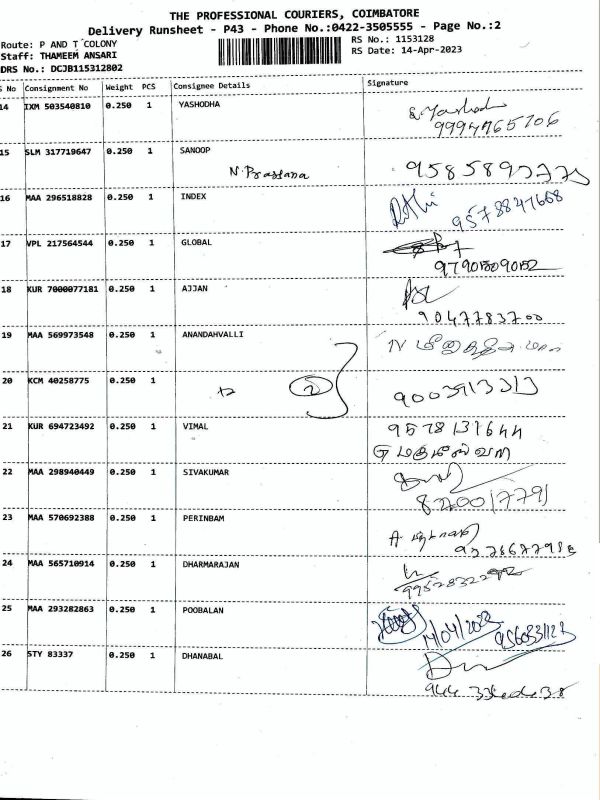 THE PROFESSIONAL COURIERS, COIMBATORE
Delivery Runsheet - P43 - Phone No.:0422-3505555 - Page No.:2
Route: P AND T COLONY
RS No.: 1153128
Staff: THAMEEM ANSARI
RS Date: 14-Apr-2023
DRS No.: DCJB115312802
S No Consignment No Weight PCS Consignee Details Signature
14 IXM 503540810 0.250 1 YASHODHA
9994765706
15 SLM 317719647 0.250 1 SANOOP
N. Prassana
16 MAA 296518828 0.250 1 INDEX
9578847668
17 VPL 217564544 0.250 1 GLOBAL
18 KUR 7000077181 0.250 1 AJJAN
9047783700
19 MAA 569973548 0.250 1 ANANDAHVALLI
20 KCM 40258775 0.250 1
2
9003913313
21 KUR 694723492 0.250 1 VIMAL
9578131644
22 MAA 298940449 0.250 1 SIVAKUMAR
23 MAA 570692388 0.250 1 PERINBAM
24 MAA 565710914 0.250 1 DHARMARAJAN
25 MAA 293282863 0.250 1 POOBALAN
14/04/2023
26 STY 83337 0.250 1 DHANABAL